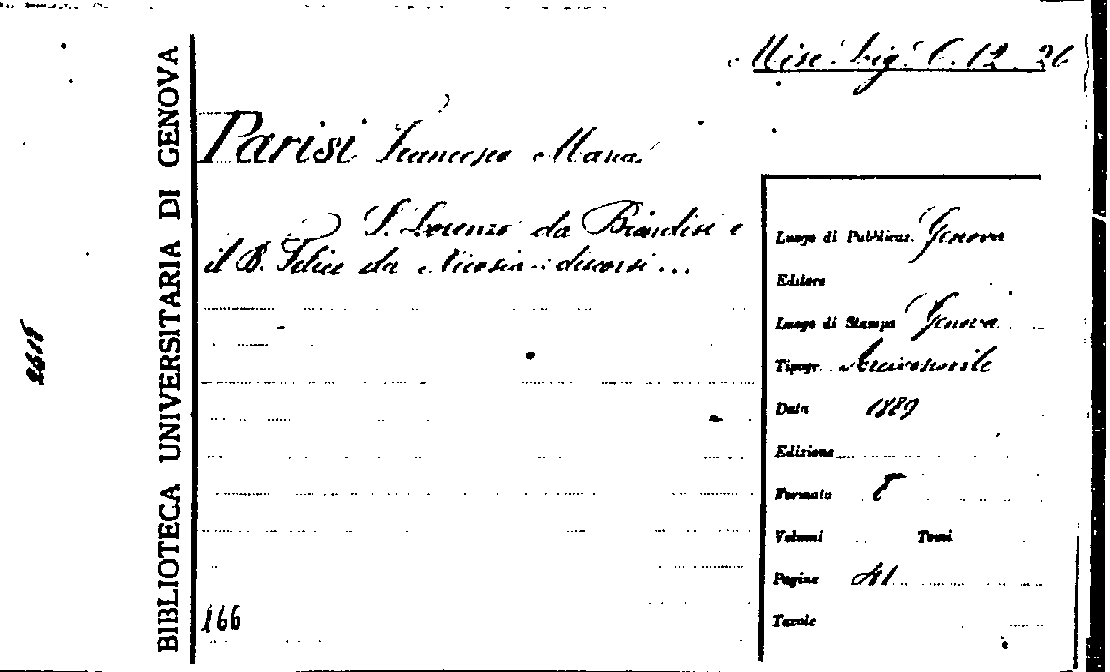 Misc. Lig. C. 12. 26
Parisi Francesco Maria
S. Lorenzo da Brindisi e
il B. Felice da Nicosia: discorsi...
Luogo di Pubblicaz. Genova
Editore
Luogo di Stampa Genova
Tipogr. Arcivescovile
Data 1889
Edizione
Formato 8
Volumi Tomi
Pagine 41
Tavole
166
BIBLIOTECA UNIVERSITARIA DI GENOVA